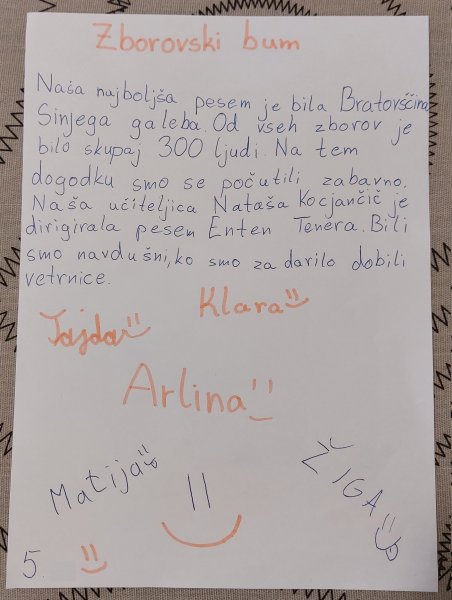 Zborovski bum
Naša najboljša pesem je bila Bratovščina
Sinjega galeba. Od vseh zborov je
bilo skupaj 300 ljudi. Na tem
dogodku smo se počutili zabavno.
Naša učiteljica Nataša Kocjančič je
dirigirala pesem Enten Tenera. Bili
smo navdušni, ko smo za darilo dobili
vetrnice.
Klara
Tajda
Arlina
Matija
ŽIGA
5.